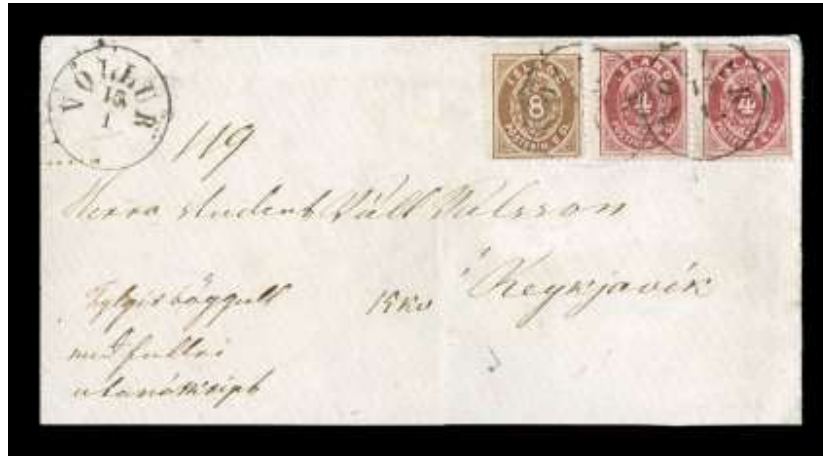 VÖLLUR
15
1
ÍSLAND
8
ÍSLAND
4
ÍSLAND
4
119
Herra student Páll Pálsson
í Reykjavík
Fylgir böggull
með fullri
utanáskript